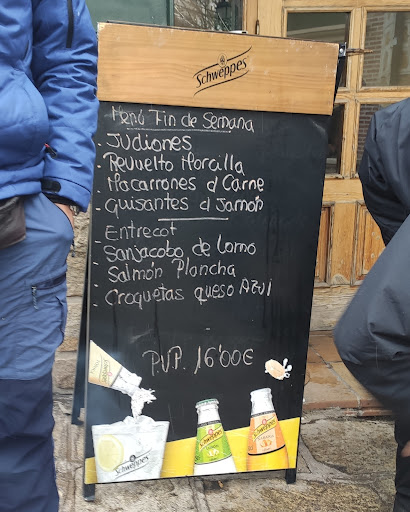 Schweppes
Menú Fin de Semana
- Judiones
- Revuelto Morcilla
- Macarrones d Carne
- Guisantes d Jamón
- Entrecot
- Sanjacobo de Lomo
- Salmón Plancha
- Croquetas queso Azul
P.V.P. 16'00€
Schweppes
Schweppes
Schweppes